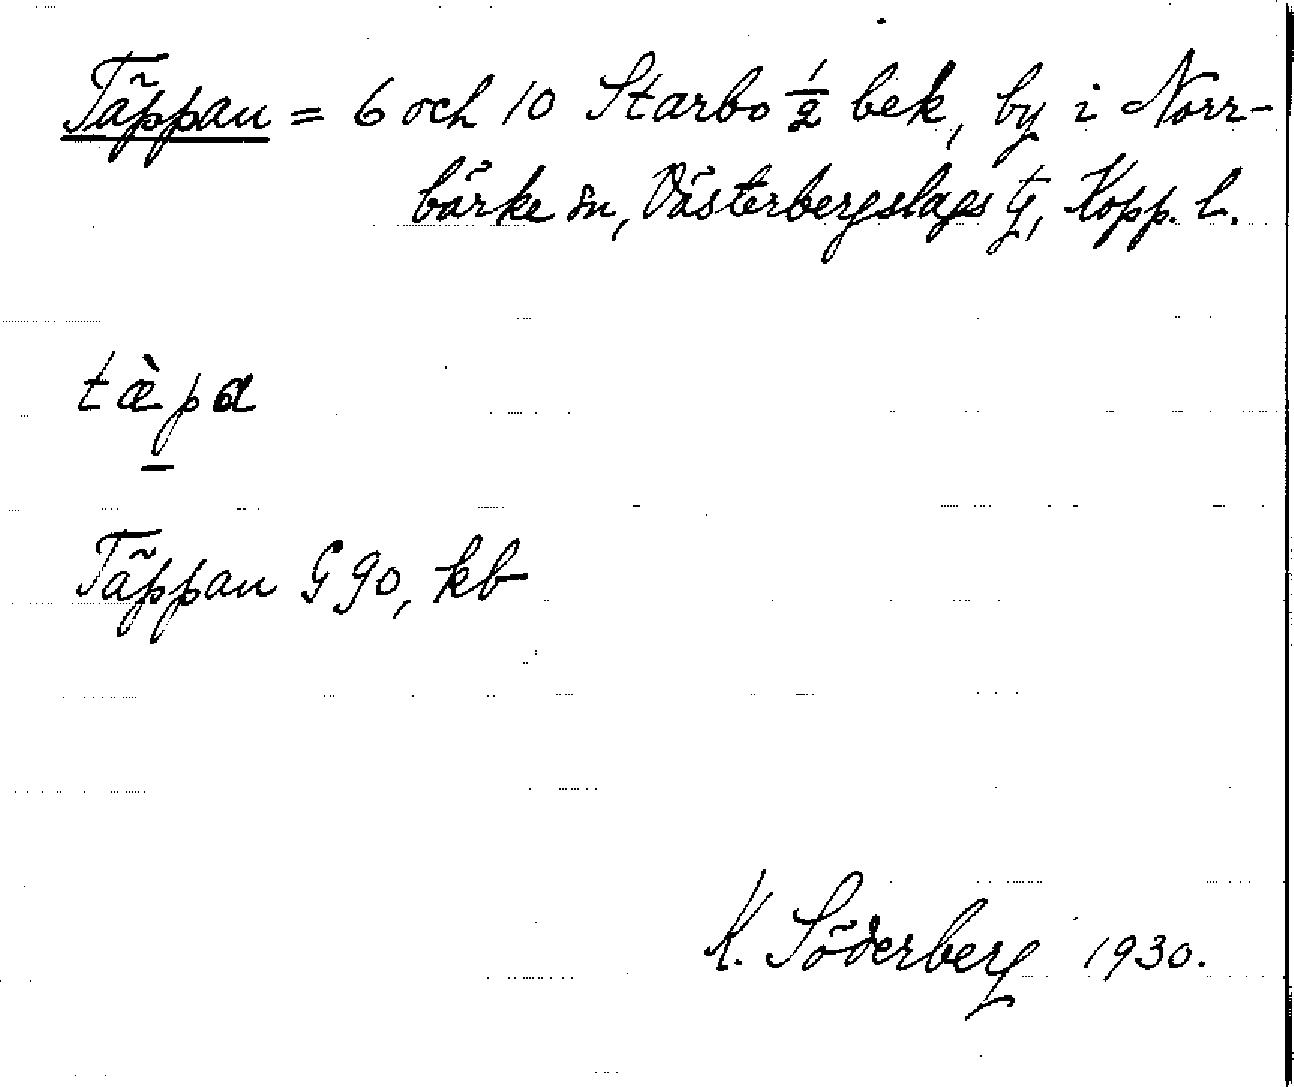 Täppan = 6 och 10 Starbo ½ bek, by i Norr-
bärke sn, Västerbergslags tg, Kopp. l.
tæ̀pa
Täppan G 90, kb
K. Söderberg 1930.